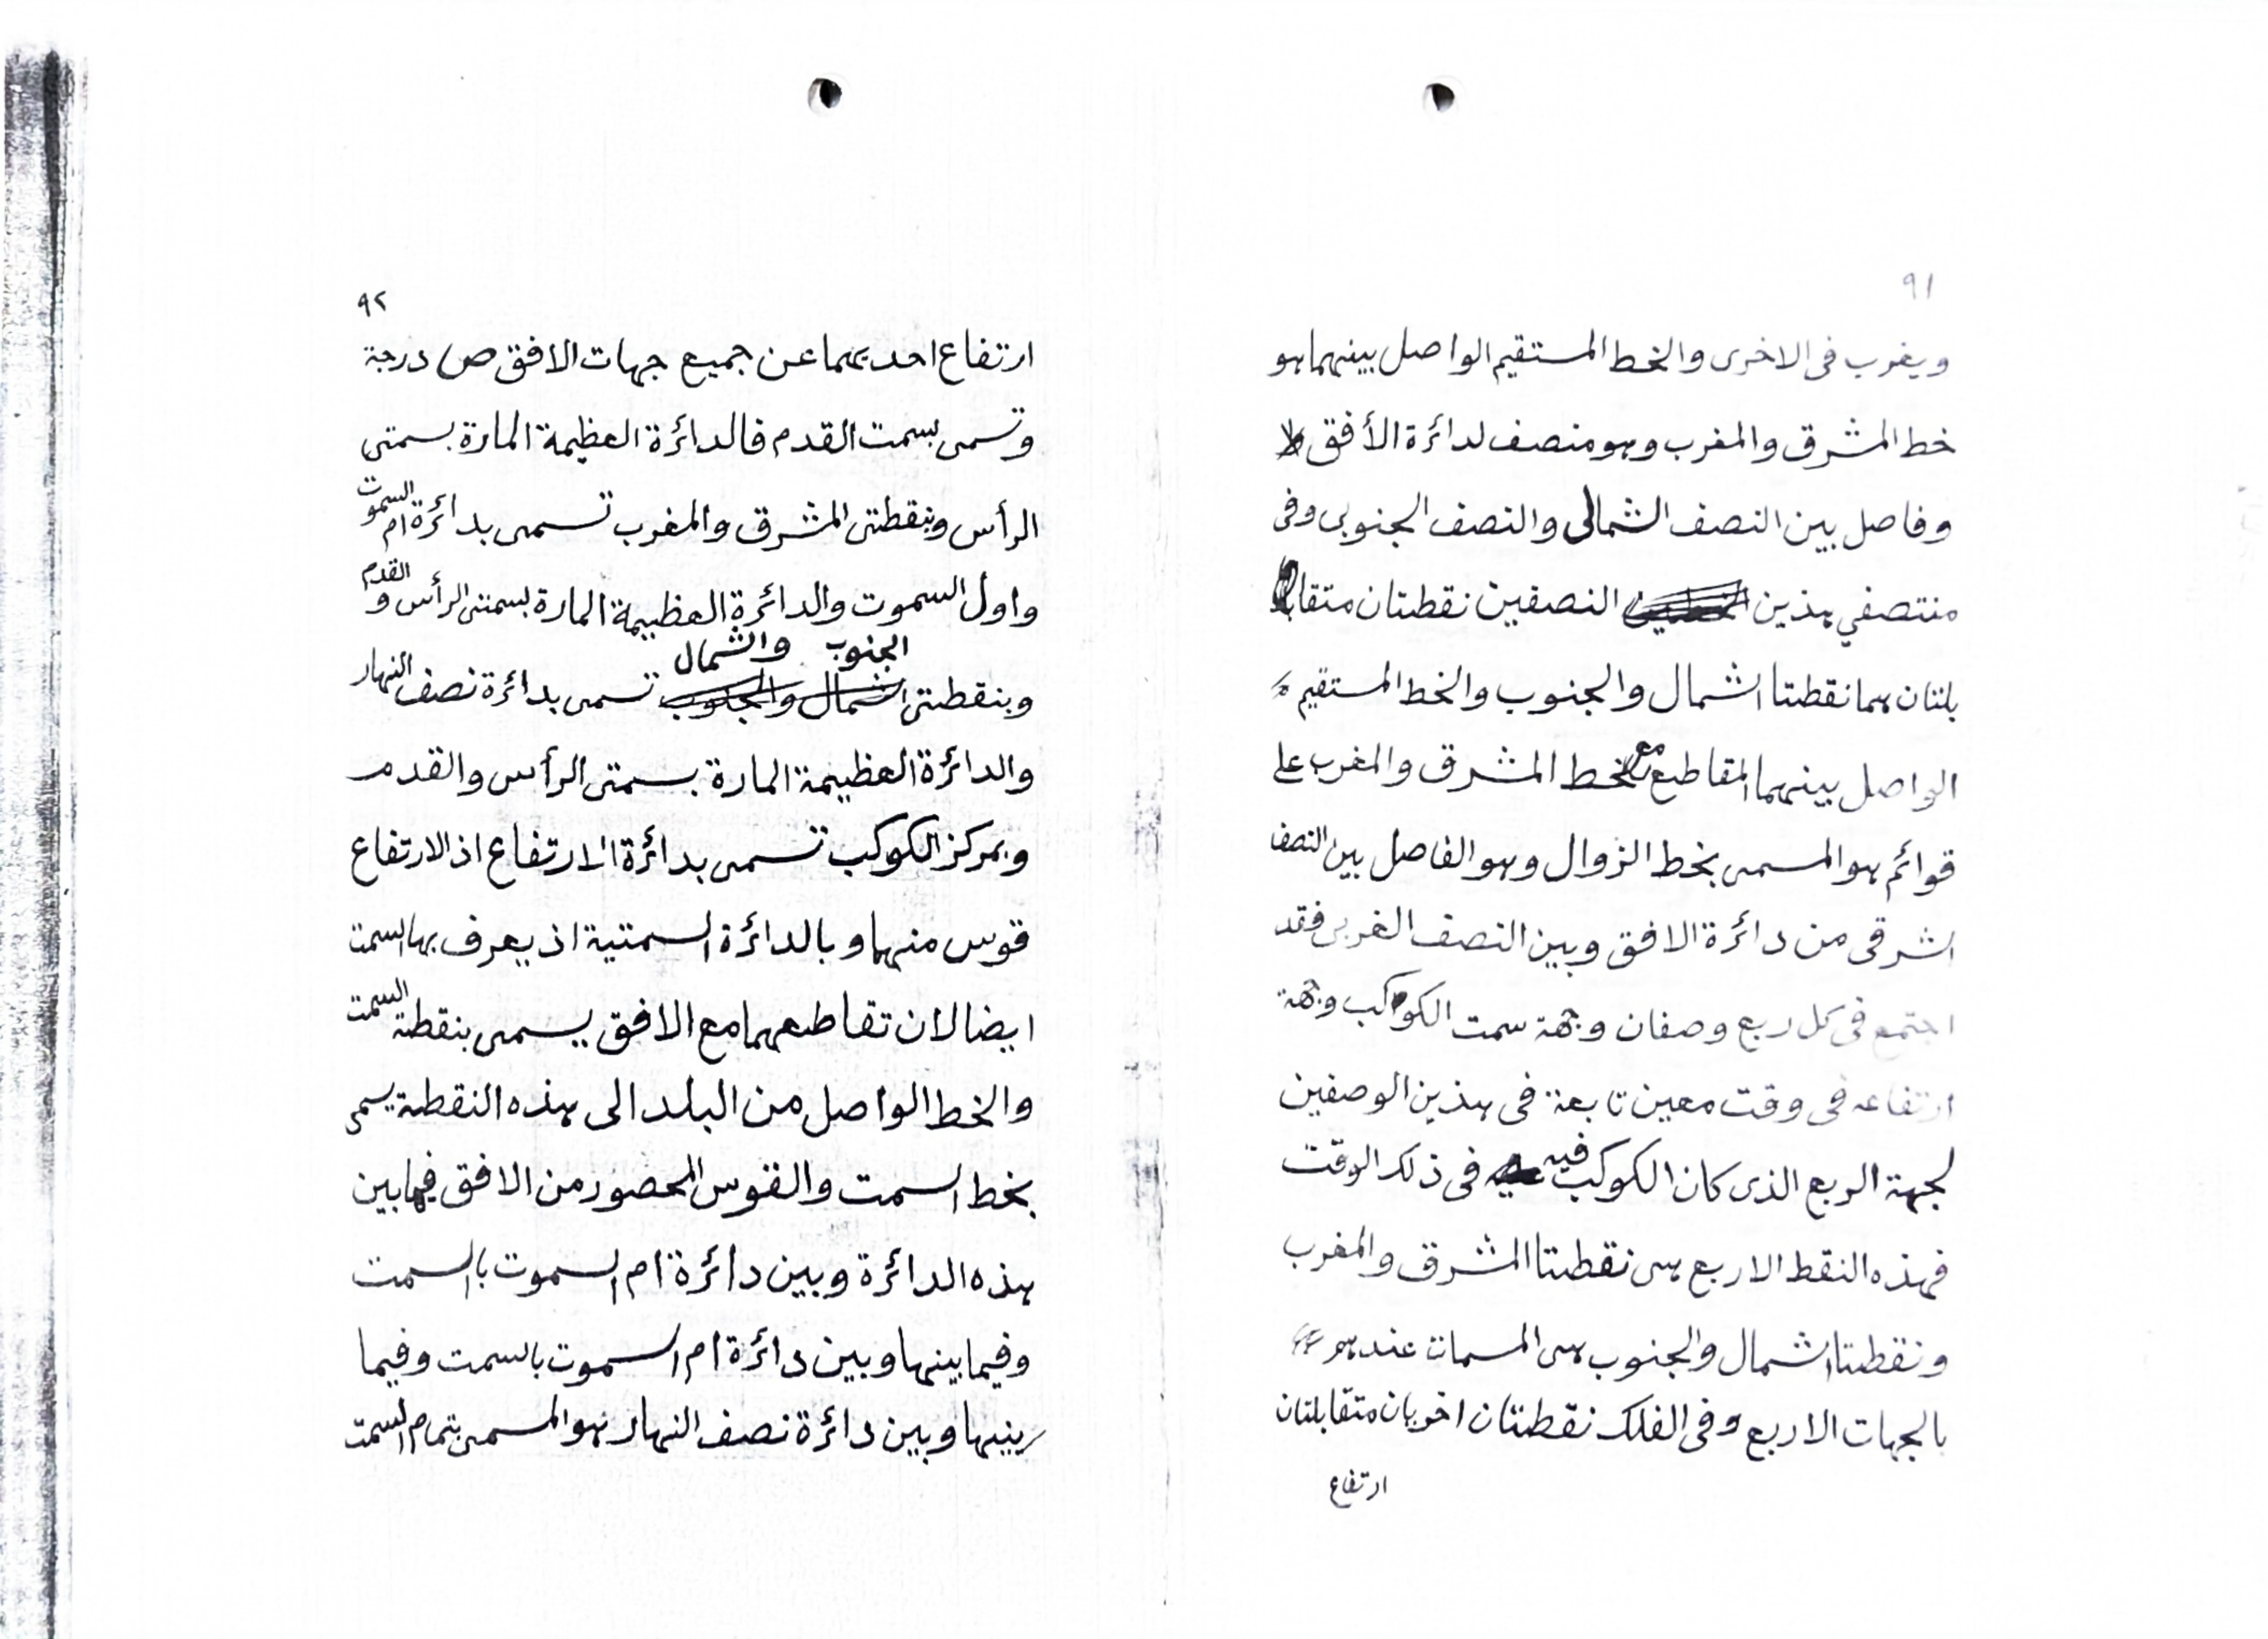 ٩١
ويغرب فى الاخرى والخط المستقيم الواصل بينهما هو
خط المشرق والمغرب وهو منصف لدائرة الأفق
وفاصل بين النصف الشمالى والنصف الجنوبى وفى
منتصفي هذين النصفين نقطتان متقا
بلتان هما نقطتا الشمال والجنوب والخط المستقيم
الواصل بينهما المقاطع مع خط المشرق والمغرب على
قوائم هو المسمى بخط الزوال وهو الفاصل بين النصف
الشرقى من دائرة الافق وبين النصف الغربى فقد
اجتمع فى كل ربع وصفان وجهة سمت الكواكب وجهة
ارتفاعه فى وقت معين تابعة فى هذين الوصفين
لجهة الربع الذى كان الكوكب فيه فى ذلك الوقت
فهذه النقط الاربع هى نقطتا المشرق والمغرب
ونقطتا الشمال والجنوب هى المسمات عندهم
بالجهات الاربع وفى الفلك نقطتان اخريان متقابلتان
ارتفاع
٩٢
ارتفاع احديهما عن جميع جهات الافق ص درجة
وتسمى بسمت القدم فالدائرة العظيمة المارة بسمتى
الرأس وبنقطتى المشرق والمغرب تسمى بدائرة ام السموت
واول السموت والدائرة العظيمة المارة بسمتى الرأس و القدم
وبنقطتى الجنوب والشمال تسمى بدائرة نصف النهار
والدائرة العظيمة المارة بسمتى الرأس والقدم
وبمركز الكوكب تسمى بدائرة الارتفاع اذ الارتفاع
قوس منها وبالدائرة السمتية اذ يعرف بها السمت
ايضا لان تقاطعهما مع الافق يسمى بنقطة السمت
والخط الواصل من البلد الى هذه النقطة يسمى
بخط السمت والقوس المحصور من الافق فيما بين
هذه الدائرة وبين دائرة ام السموت بالسمت
وفيما بينها وبين دائرة ام السموت بالسمت وفيما
بينها وبين دائرة نصف النهار فهو المسمى بتمام السمت